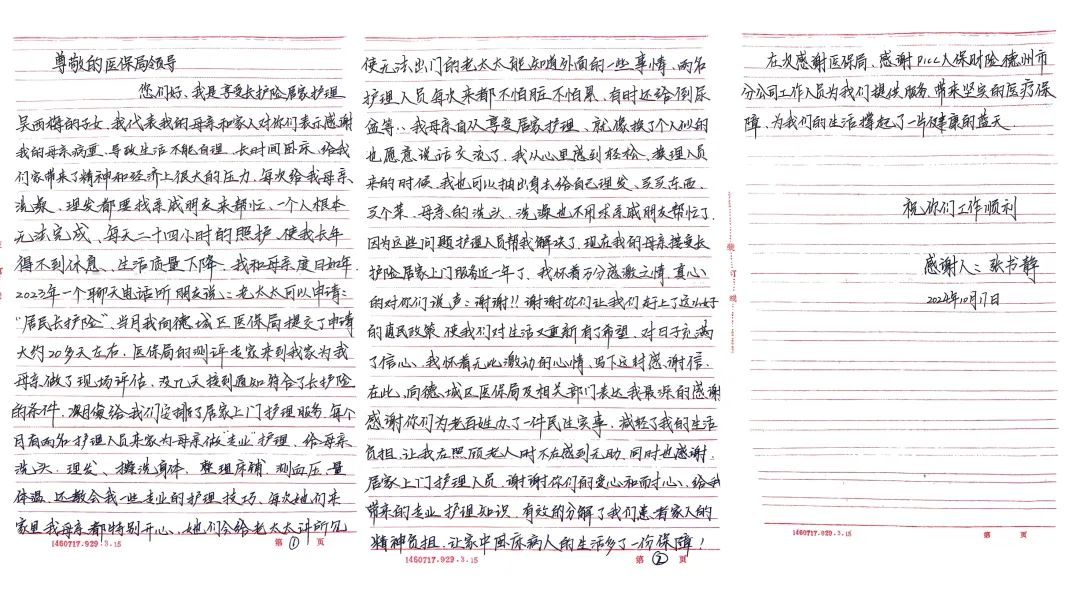 尊敬的医保局领导
您们好、我是享受长护险居家护理
吴西梅的子女、我代表我的母亲和家人对你们表示感谢
我的母亲病重、导致生活不能自理、长时间卧床、给我
们家带来了精神和经济上很大的压力、每次给我母亲
洗澡、理发都要找亲戚朋友来帮忙、一个人根本
无法完成、每天二十四小时的照护、使我长年
得不到休息、生活质量下降、我和母亲度日如年、
2023年一个聊天电话听朋友说:老太太可以申请:
"居民长护险"、当月我向德城区医保局提交了申请
大约20多天左右、医保局的测评专家来到我家为我
母亲做了现场评估、没几天接到通知符合了长护险
的条件、给我们安排了居家上门护理服务、每个
月有两名护理人员来家为母亲做"专业"护理、给母亲
洗头、理发、擦洗身体、整理床铺、测血压、量
体温、还教会我一些专业的护理技巧、每次她们来
家里我母亲都特别开心、她们会给老太太讲所见
1460717.929.3.15
第 ① 页
使无法出门的老太太能知道外面的一些事情、两名
护理人员每次来都不怕脏、不怕累、有时还给倒尿
盆等、、我母亲自从享受居家护理、就像换了个人似的
也愿意说话交流了、我从心里感到轻松、护理人员
来的时候、我也可以抽出身去给自己理发、买买东西、
买个菜、母亲的洗头、洗澡也不用求亲戚朋友帮忙了、
因为这些问题护理人员帮我解决了、现在我的母亲接受长
护险居家上门服务近一年了、我怀着万分感激之情、真心
的对你们说声:谢谢!!谢谢你们让我们赶上了这么好
的惠民政策、使我们对生活又重新有了希望、对日子充满
了信心、我怀着无比激动的心情、写下这封感谢信、
在此、向德城区医保局及相关部门表达我最深的感谢
感谢你们为老百姓办了一件民生实事、减轻了我的生活
负担、让我在照顾老人时不在感到无助、同时也感谢
居家上门护理人员、谢谢你们的爱心和耐心、给我
带来的专业护理知识、有效的分解了我们患者家人的
精神负担、让家中卧床病人的生活多了一份保障!
1460717.929.3.15
第 ② 页
在次感谢医保局、感谢PICC人保财险德州市
分公司工作人员为我们提供服务、带来坚实的医疗保
障、为我们的生活撑起了一片健康的蓝天、
祝你们工作顺利
感谢人:张书静
2024年10月17日
装 订 线
1460717.929.3.15
第 页